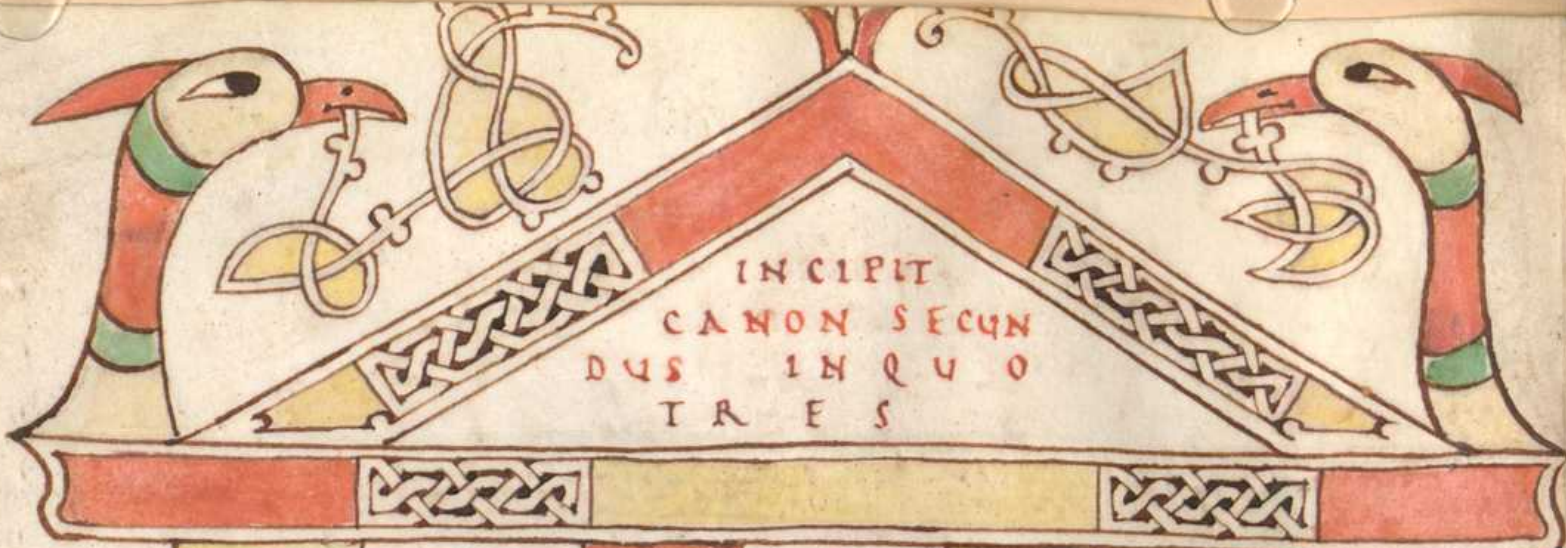 INCIPIT
CANON SECUN
DUS IN QUO
TRES